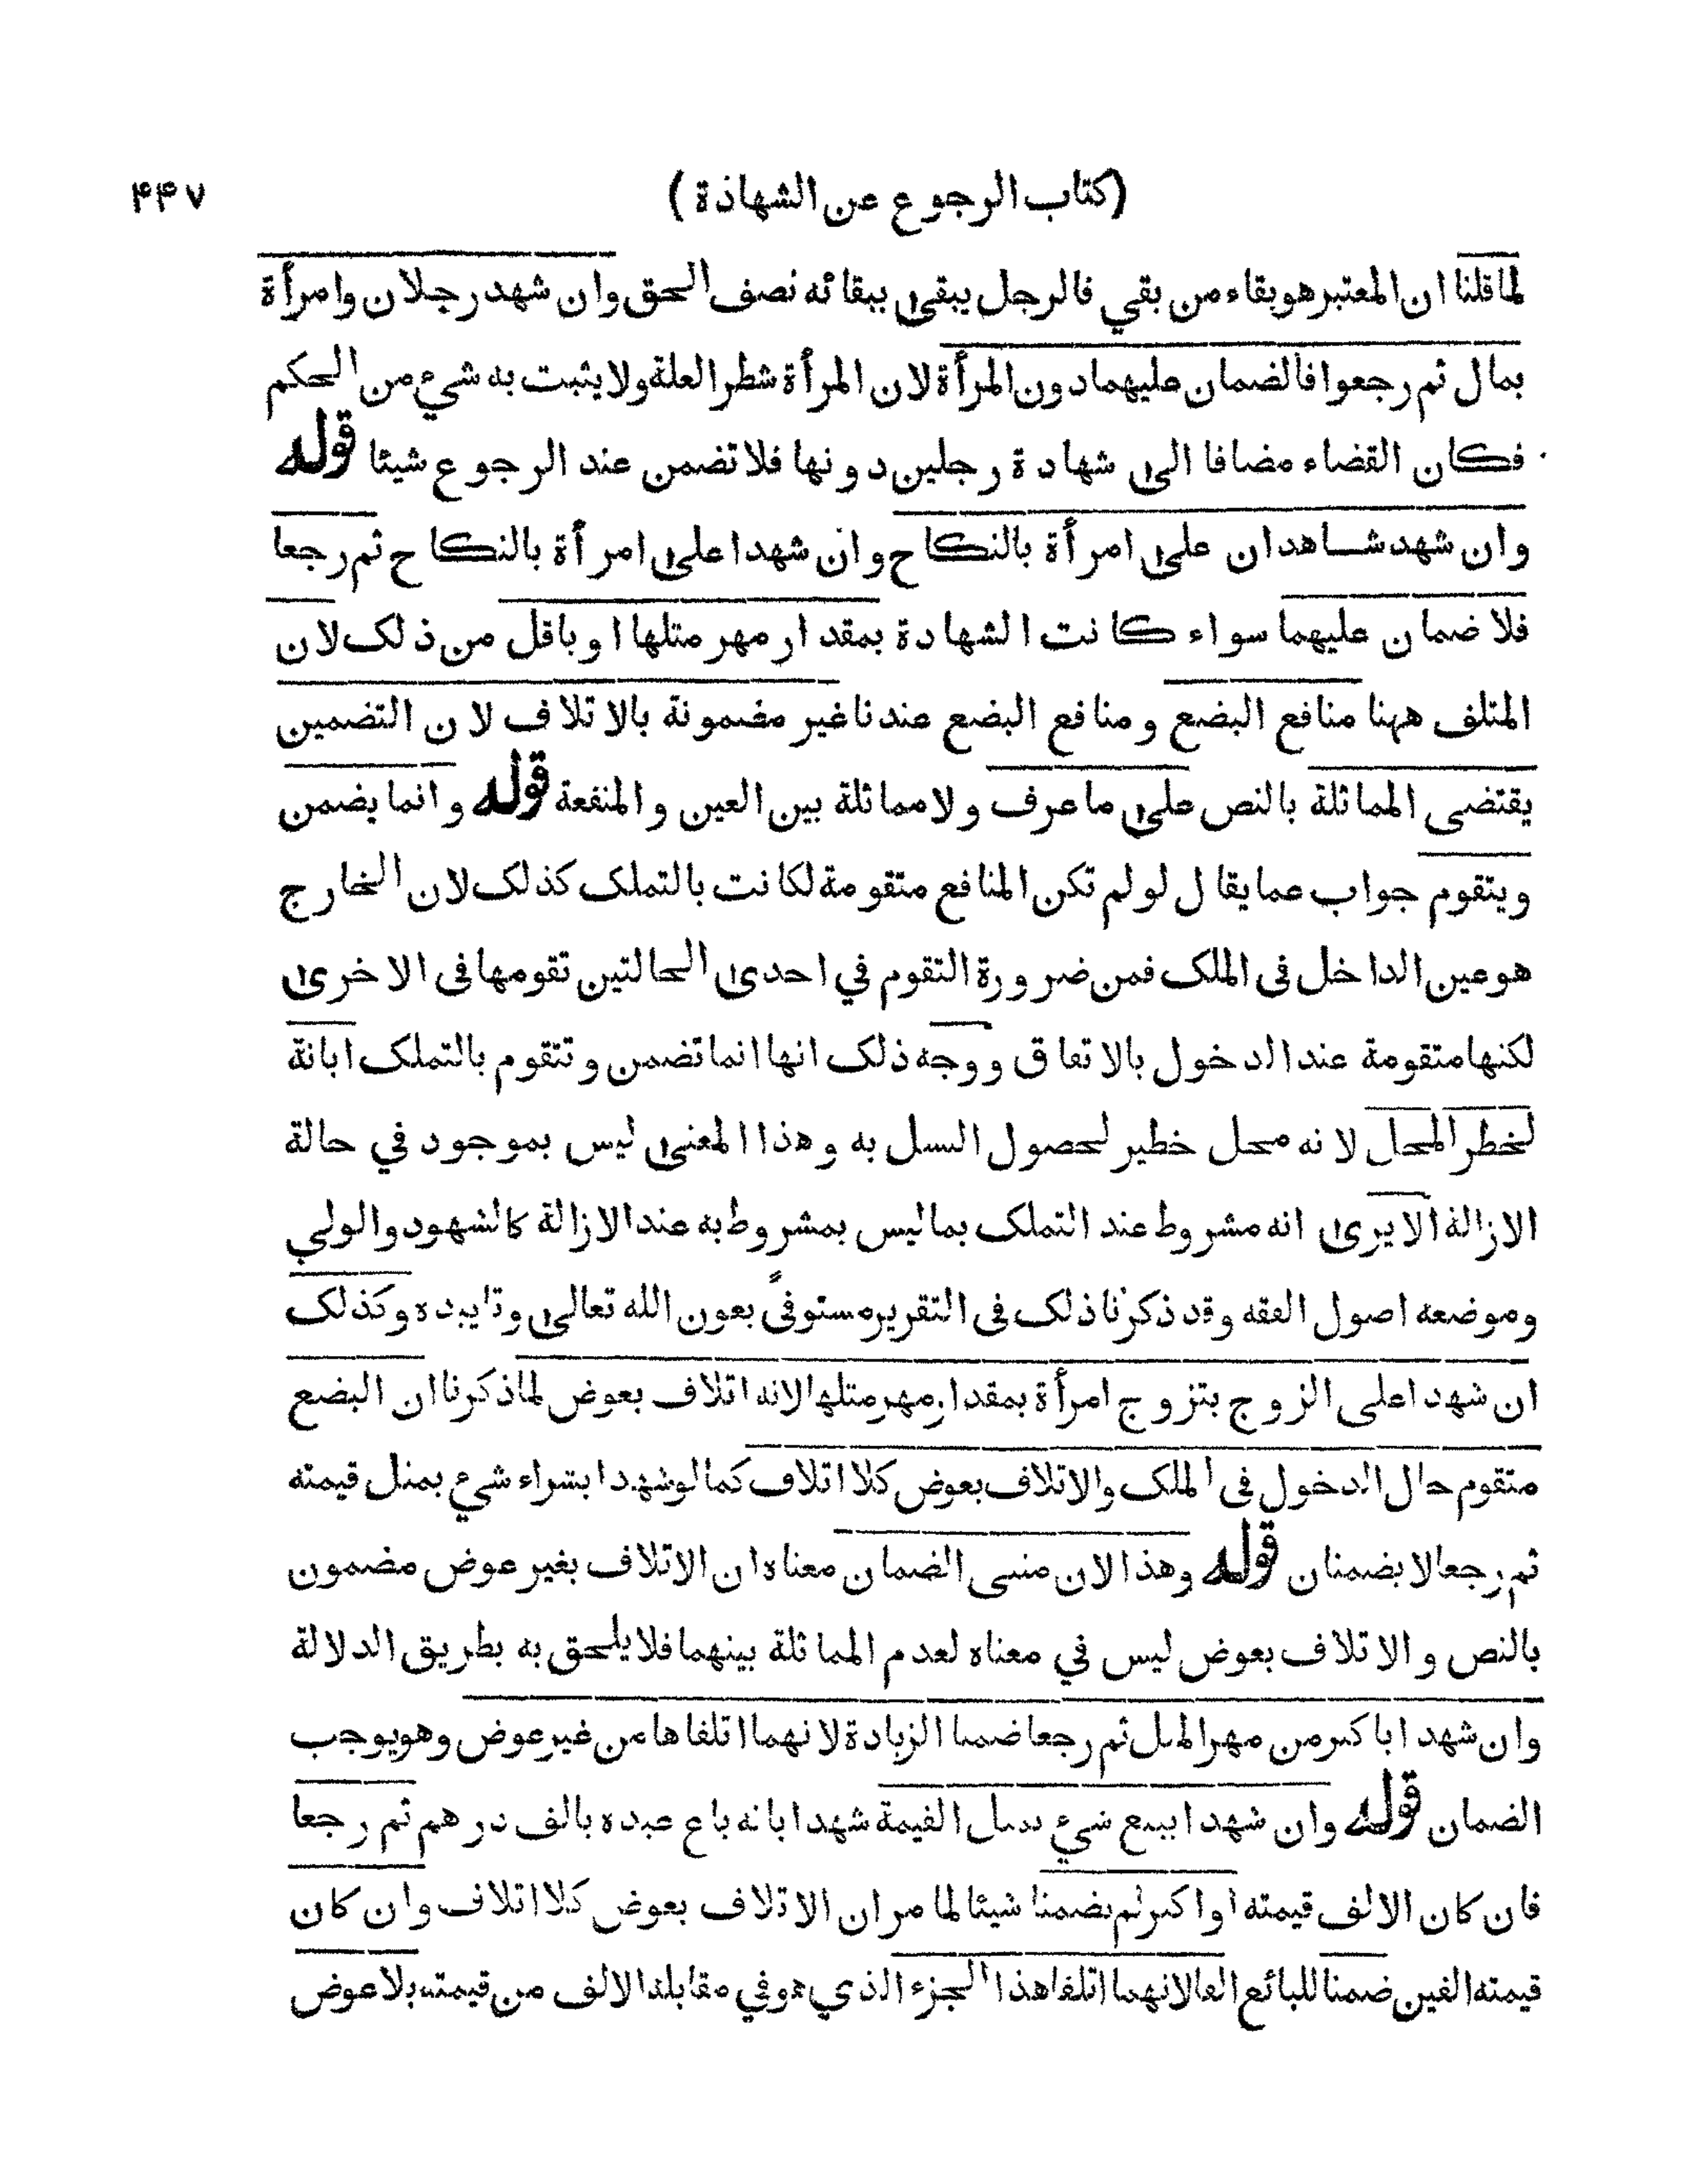 (كتاب الرجوع عن الشهاذة) ۴۴۷
لما قلنا ان المعتبر هو بقاء من بقي فالرجل يبقى ببقائه نصف الحق وان شهد رجلان وامرأة
بمال ثم رجعوا فالضمان عليهما دون المرأة لان المرأة شطر العلة ولا يثبت به شيء من الحكم
فكان القضاء مضافا الى شهادة رجلين دونها فلا تضمن عند الرجوع شيئا قوله
وان شهد شاهدان على امرأة بالنكاح وان شهدا على امرأة بالنكاح ثم رجعا
فلا ضمان عليهما سواء كانت الشهادة بمقدار مهر مثلها او باقل من ذلك لان
المتلف ههنا منافع البضع ومنافع البضع عندنا غير مضمونة بالاتلاف لان التضمين
يقتضى المماثلة بالنص على ما عرف ولا مماثلة بين العين والمنفعة قوله وانما يضمن
ويتقوم جواب عما يقال لو لم تكن المنافع متقومة لكانت بالتملك كذلك لان الخارج
هو عين الداخل فى الملك فمن ضرورة التقوم في احدى الحالتين تقومها فى الاخرى
لكنها متقومة عند الدخول بالاتفاق ووجه ذلك انها انما تضمن وتتقوم بالتملك ابانة
لخطر المحل لانه محل خطير لحصول النسل به وهذا المعنى ليس بموجود في حالة
الازالة الا يرى انه مشروط عند التملك بما ليس بمشروط به عند الازالة كالشهود والولي
وموضعه اصول الفقه وقد ذكرنا ذلك فى التقرير مستوفىً بعون الله تعالى وتاييده وكذلك
ان شهدا على الزوج بتزوج امرأة بمقدار مهر مثلها لانه اتلاف بعوض لما ذكرنا ان البضع
متقوم حال الدخول فى الملك والاتلاف بعوض كلا اتلاف كما لو شهدا بشراء شيء بمثل قيمته
ثم رجعا لا يضمنان قوله وهذا لان مبنى الضمان معناه ان الاتلاف بغير عوض مضمون
بالنص والاتلاف بعوض ليس في معناه لعدم المماثلة بينهما فلا يلحق به بطريق الدلالة
وان شهدا باكثر من مهر المثل ثم رجعا ضمنا الزيادة لانهما اتلفاها من غير عوض وهو يوجب
الضمان قوله وان شهدا ببيع شيء بمثل القيمة شهدا بانه باع عبده بالف درهم ثم رجعا
فان كان الالف قيمته او اكثر لم يضمنا شيئا لما مر ان الاتلاف بعوض كلا اتلاف وان كان
قيمته الفين ضمنا للبائع الفا لانهما اتلفا هذا الجزء الذي هو في مقابلة الالف من قيمته بلا عوض